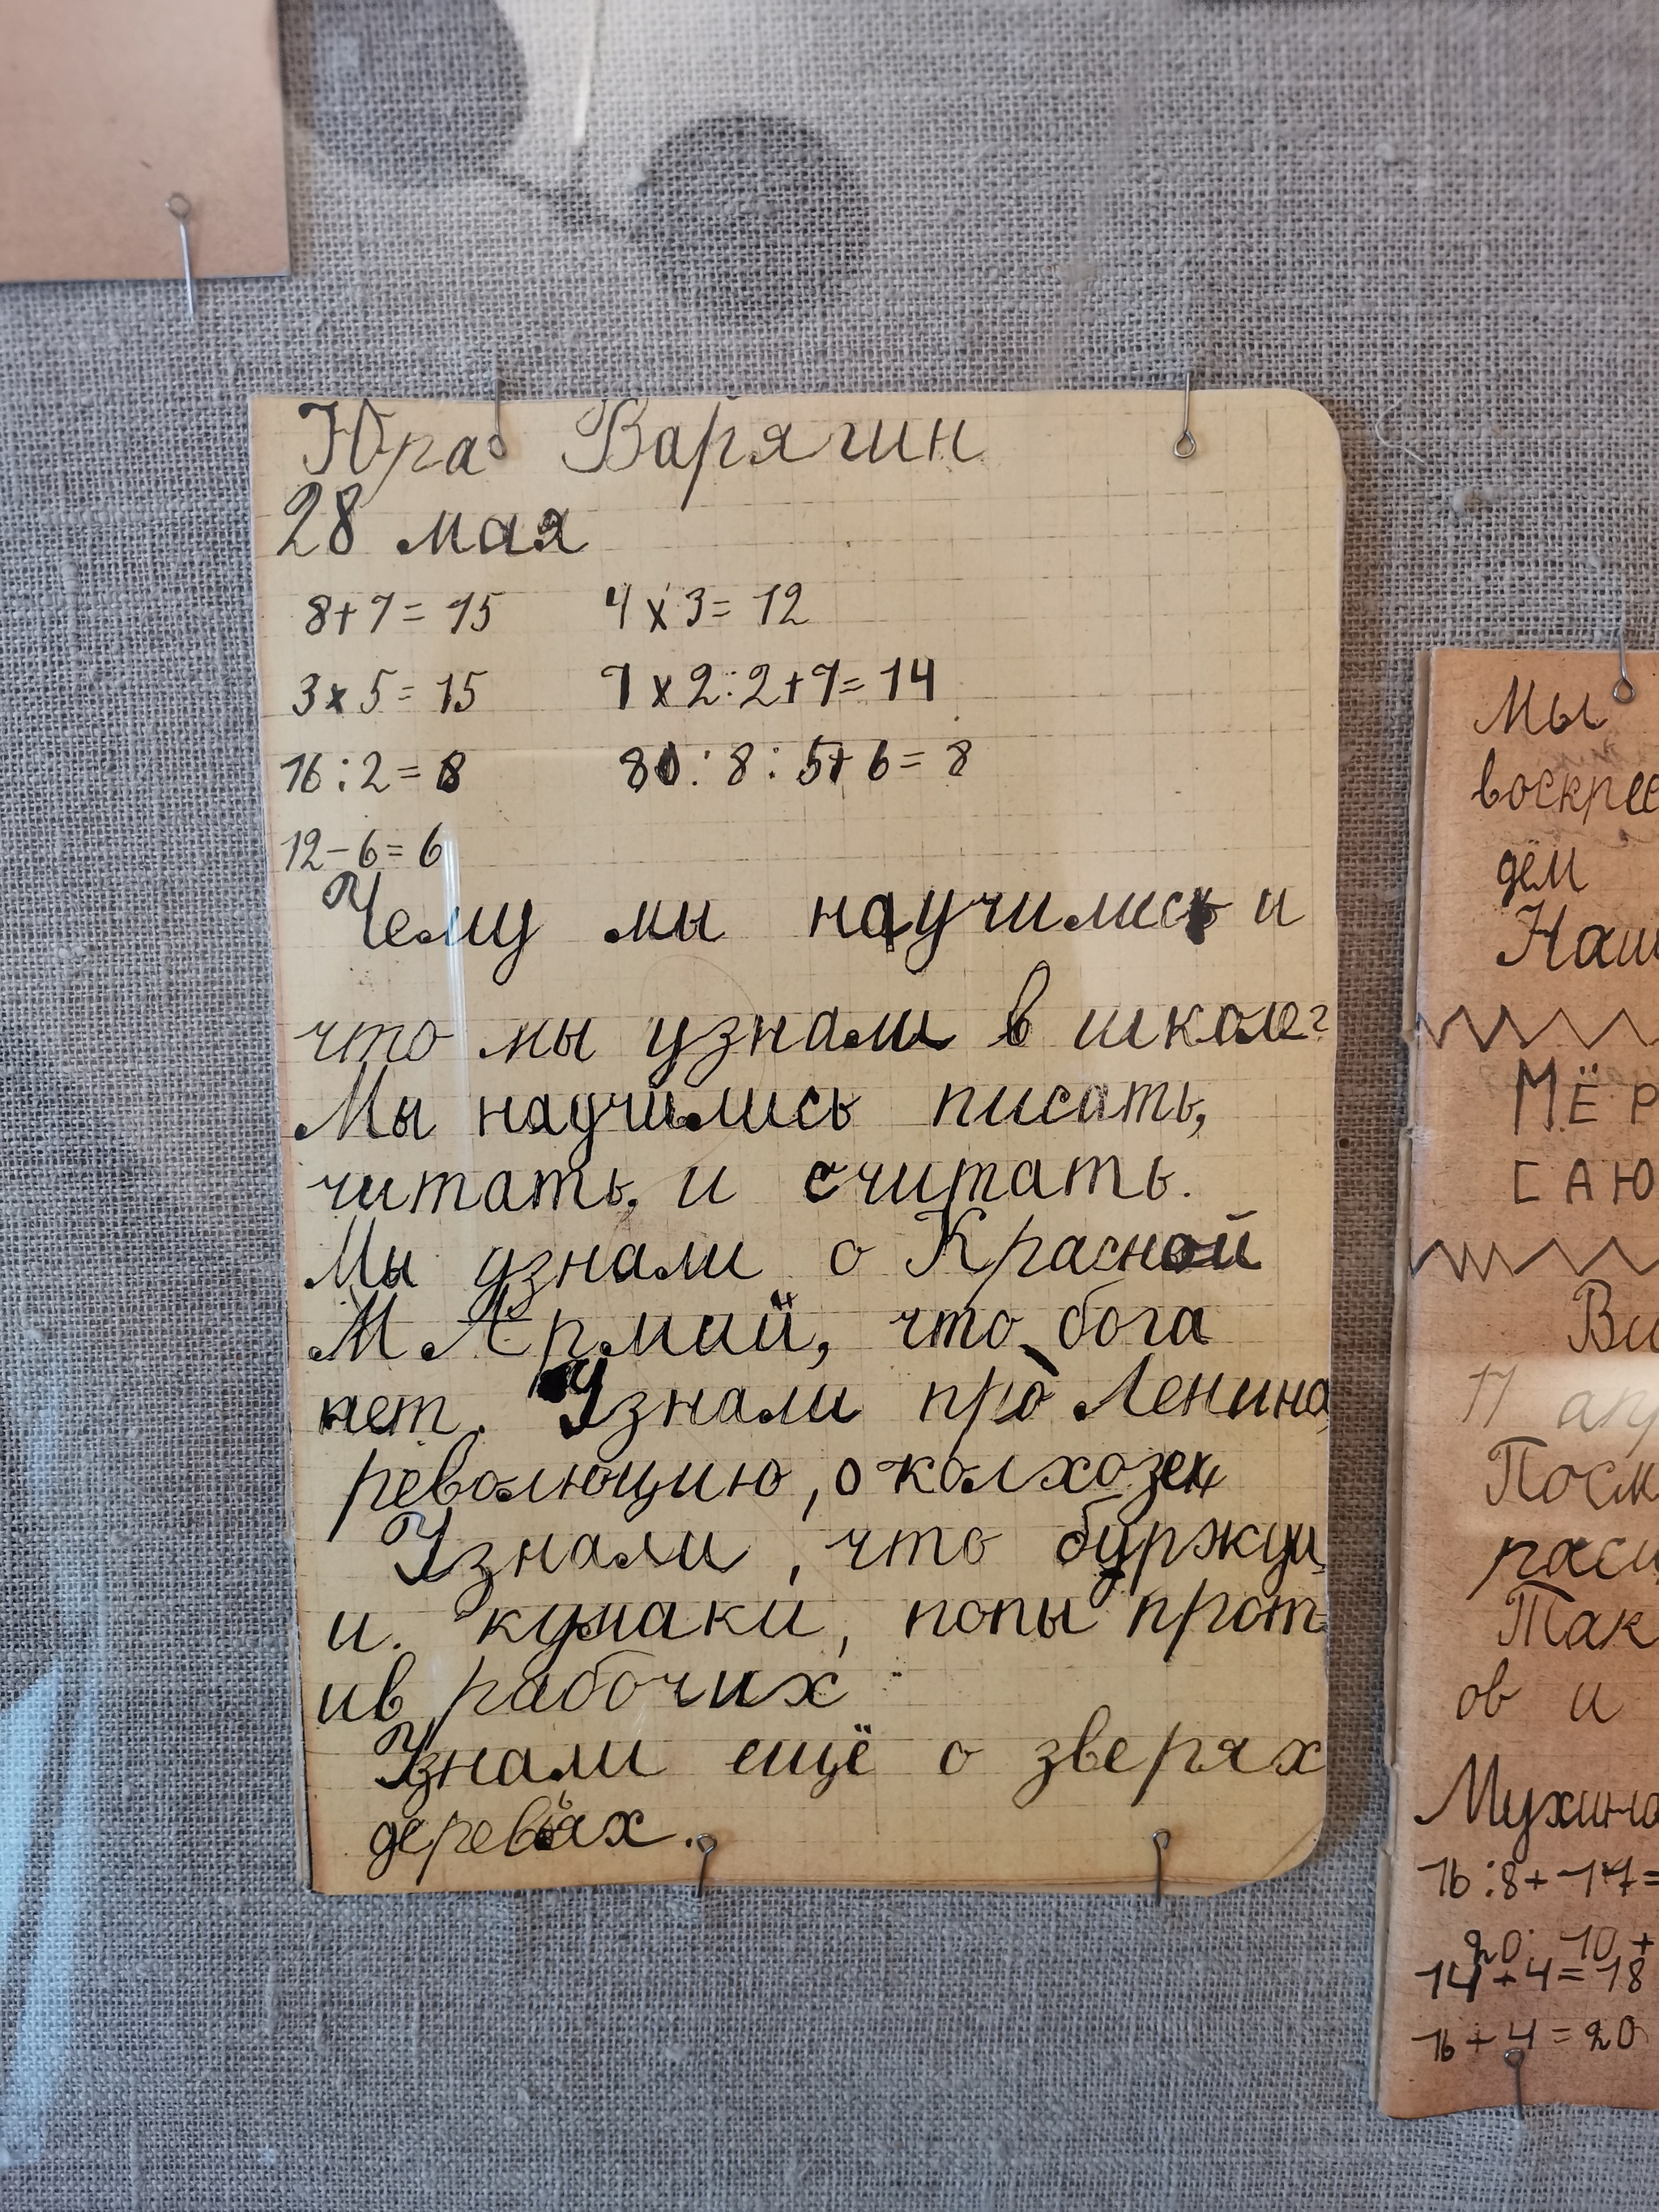 Юра Варягин
28 мая
8+7=15 4x3=12
3x5=15 7x2:2+7=14
16:2=8 80:8:5+6=8
12-6=6
Чему мы научились и
что мы узнали в школе?
Мы научились писать,
читать, и считать.
Мы узнали о Красной
М Армий, что бога
нет. Узнали про Ленина
революцию, о колхозех
Узнали, что буржуи
и. кулаки, попы прот-
ив рабочих
Узнали ещё о зверях
деревьях.
Мы
воскрес
дём
Наш
МЁР
САЮ
Ви
17 апр
Посм
расц
Так
ов и
Мухина
16:8+17=
20:10+
14+4=18
16+4=20